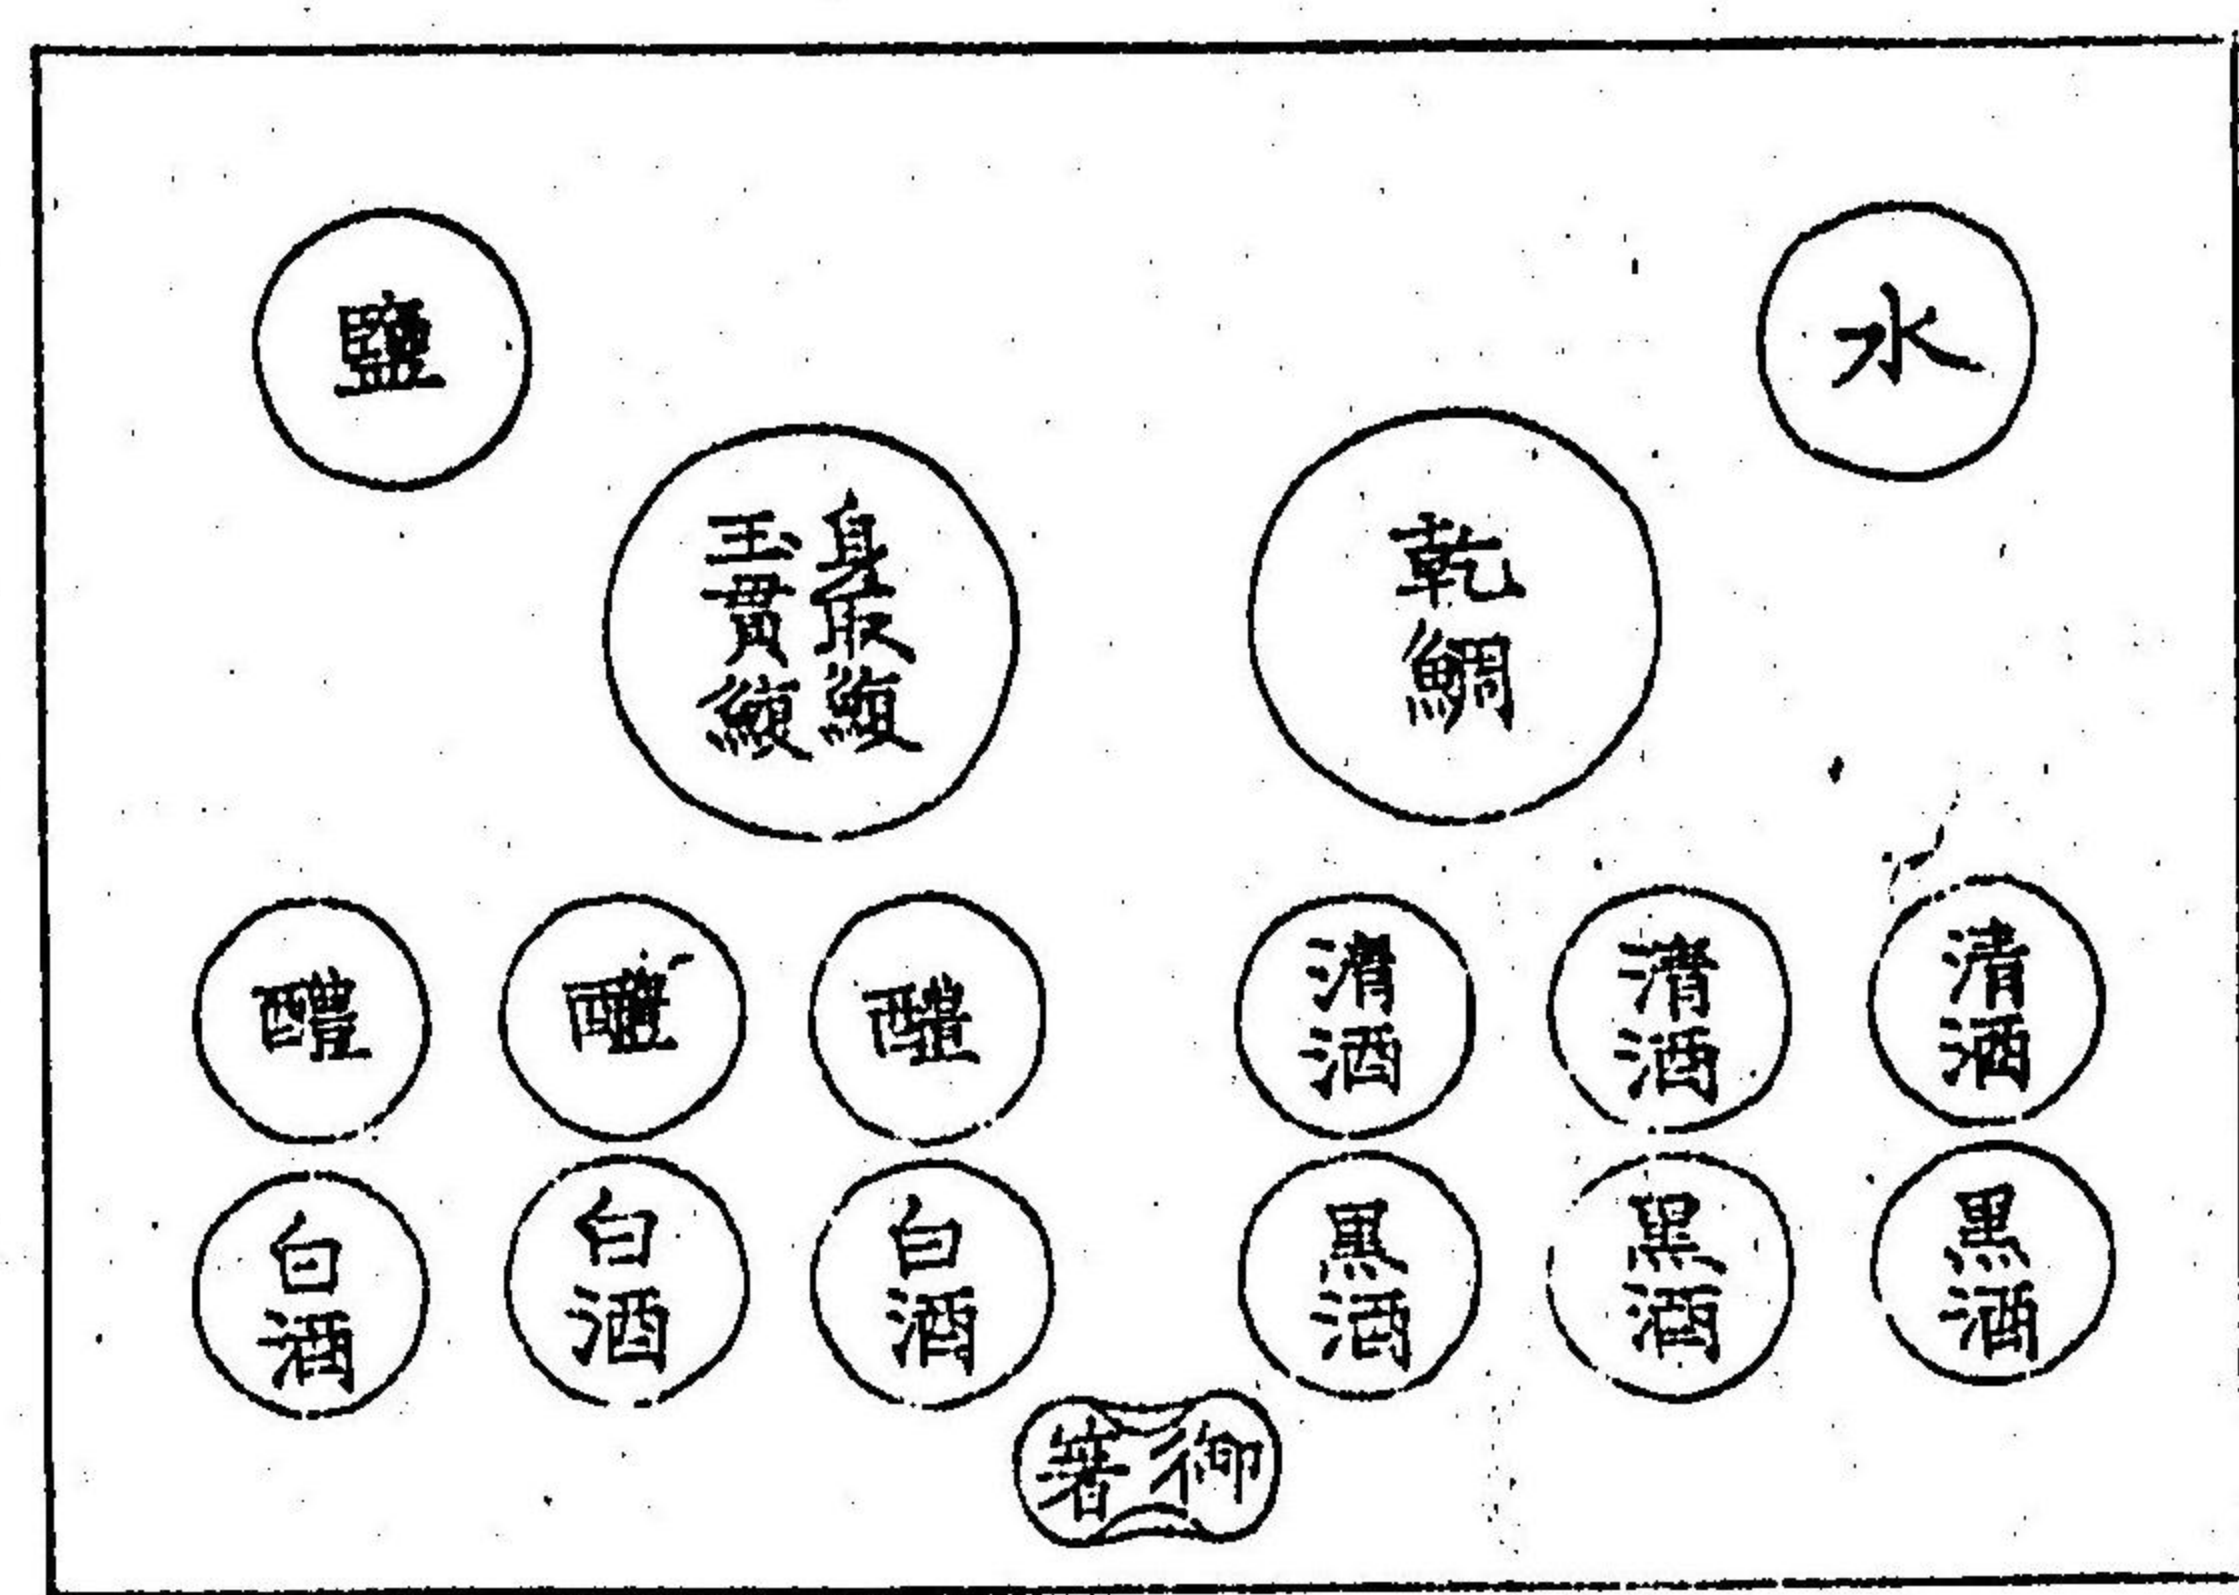 水
鹽
乾鯛
身取鰒
玉貫鰒
清酒
清酒
清酒
醴
醴
醴
黒酒
黒酒
黒酒
白酒
白酒
白酒
御箸